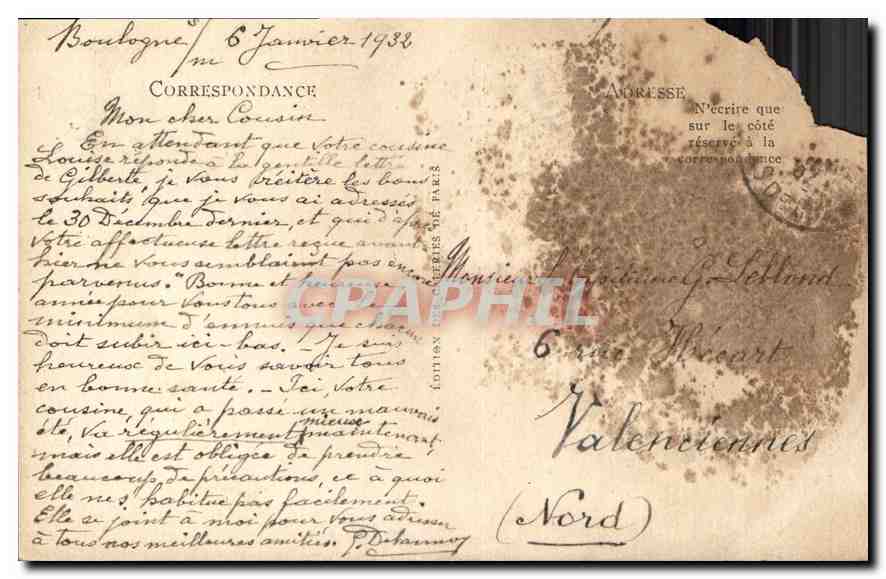 Boulogne s/m 6 Janvier 1932
CORRESPONDANCE
Mon cher Cousin
En attendant que votre cousine
Louise réponde à la gentille lettre
de Gilberte, je vous réitère les bons
souhaits, que je vous ai adressés
le 30 Décembre dernier, et qui d'après
votre affectueuse lettre reçue avant
hier ne vous semblaient pas encore
parvenus. "Bonne et heureuse
année pour vous tous avec
minimum d'ennuis que chacun
doit subir ici-bas. - Je suis
heureux de vous savoir tous
en bonne santé. - Ici, votre
cousine, qui a passé un mauvais
été, va régulièrement mieux maintenant,
mais elle est obligée de prendre
beaucoup de précautions, ce à quoi
elle ne s'habitue pas facilement.
Elle se joint à moi pour vous adresser
à tous nos meilleures amitiés.
ÉDITION DES GALERIES DE PARIS
ADRESSE
N'écrire que
sur le côté
réservé à la
correspondance
Monsieur Leblond
6 rue Hécart
Valenciennes
(Nord)
CPARHIL.com